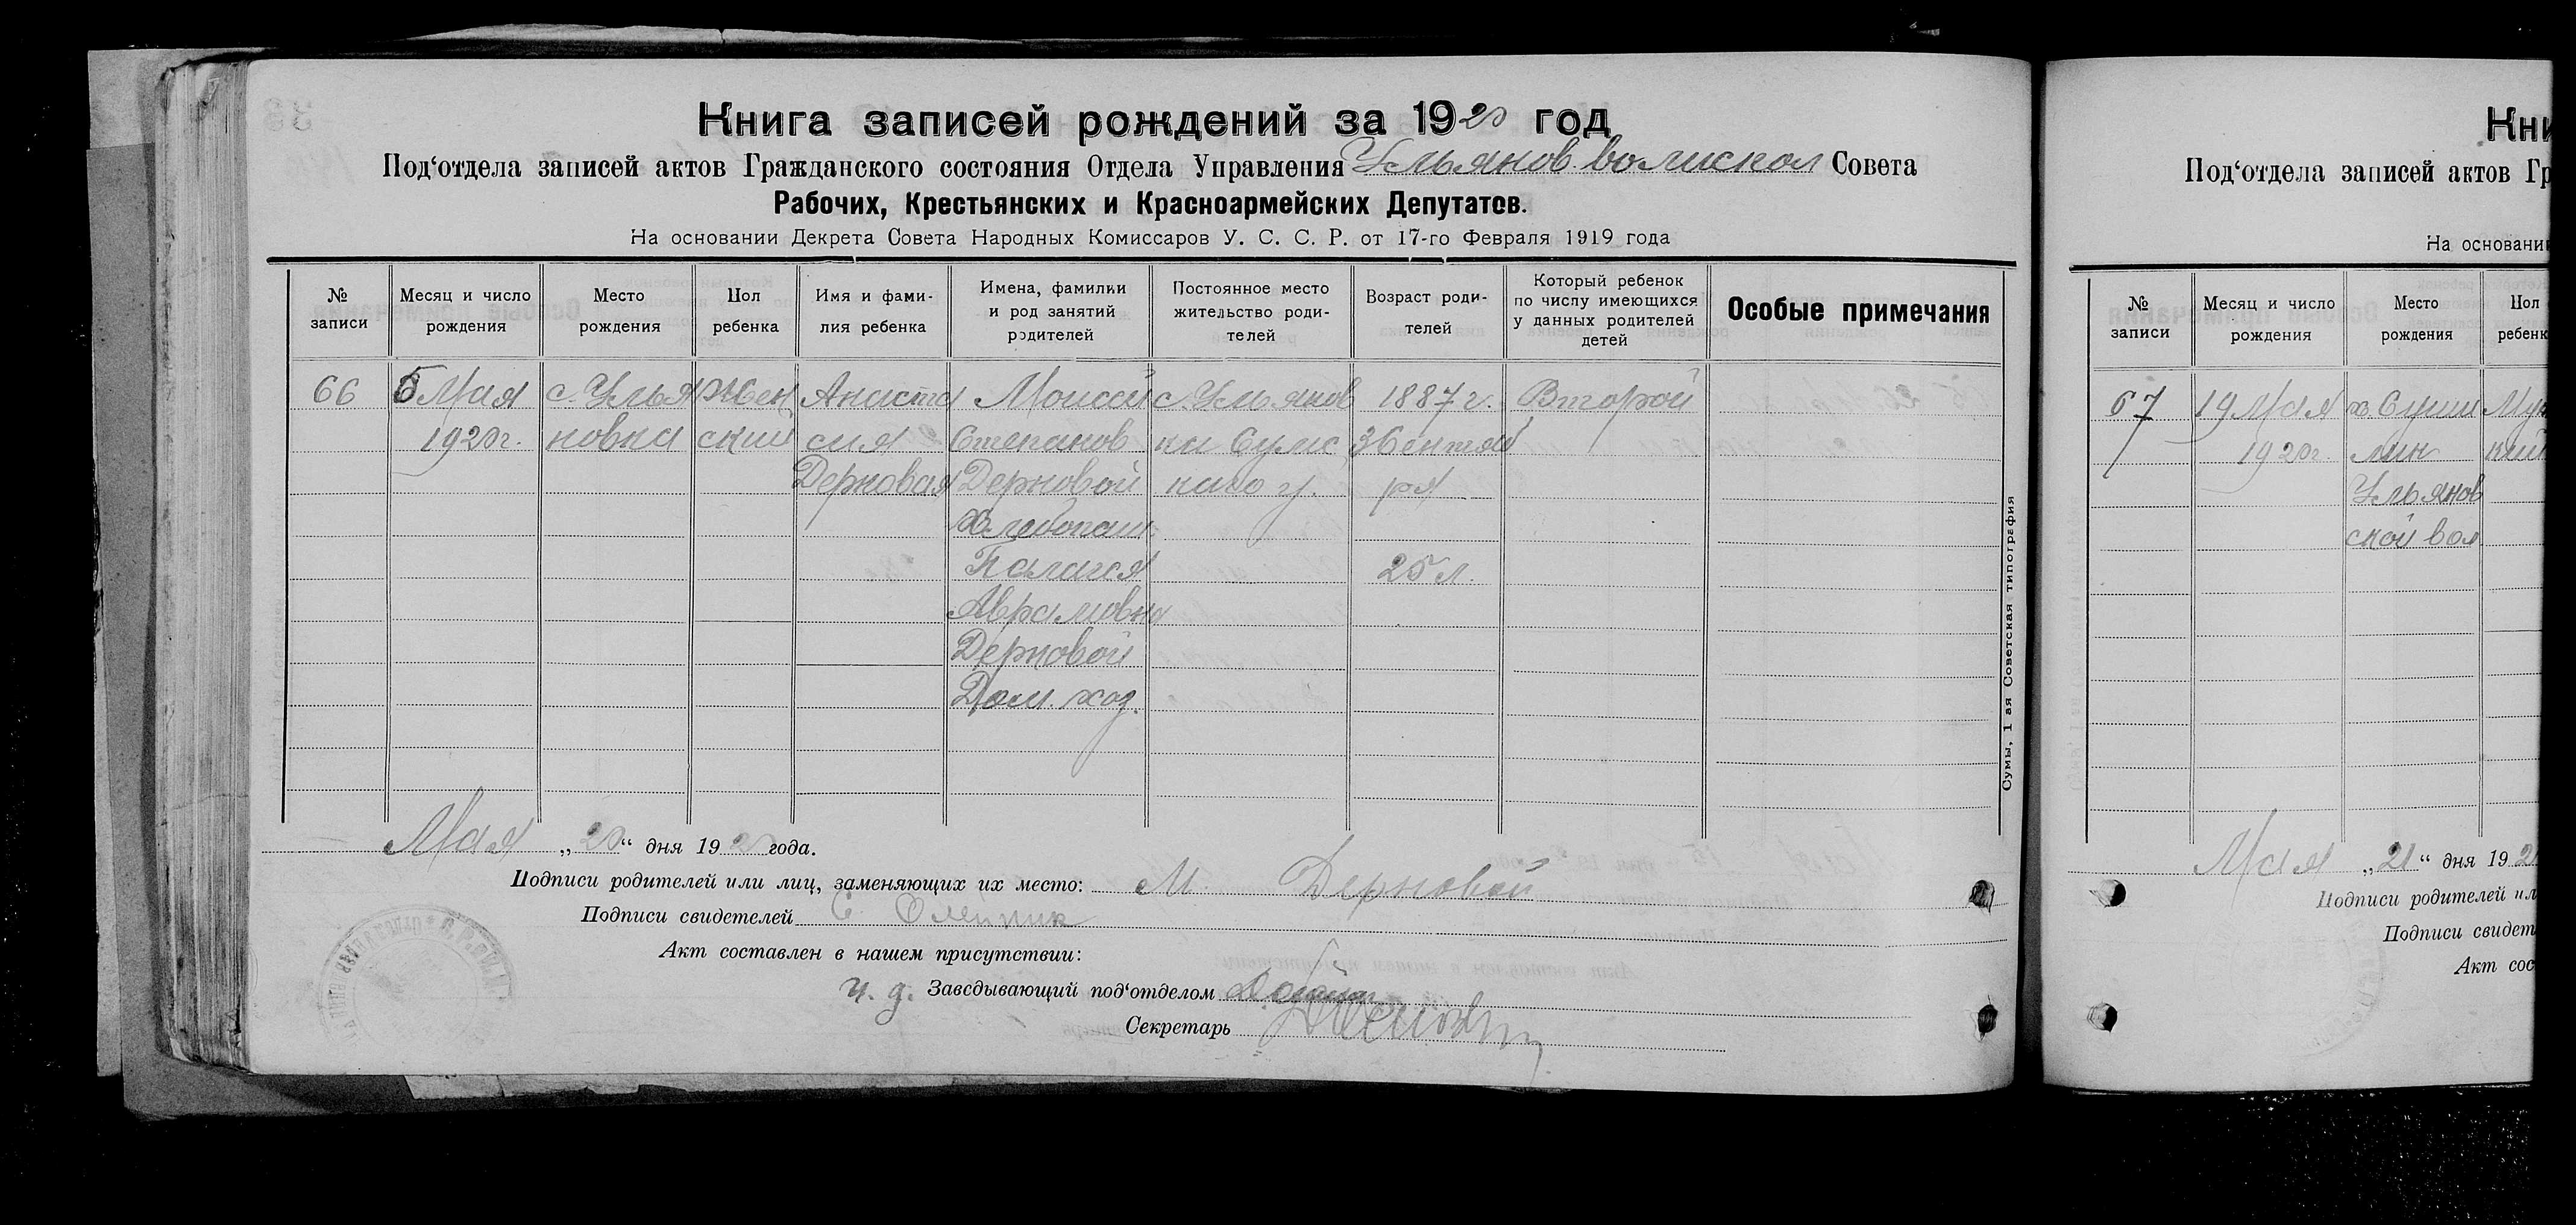 Книга записей рождений за 1920 год
Под‘отдела записей актов Гражданского состояния Отдела Управления Ульянов. Совета
Рабочих, Крестьянских и Красноармейских Депутатов.
На основании Декрета Совета Народных Комиссаров У. С. С. Р. от 17-го Февраля 1919 года
№ записи
Месяц и число рождения
Место рождения
Пол ребенка
Имя и фами-
лия ребенка
Имена, фамилии
и род занятий
родителей
Постоянное место
жительство роди-
телей
Возраст роди-
телей
Который ребенок
по числу имеющихся
у данных родителей
детей
Особые примечания
66
Мая
1920г.
с. Улья
новка
Жен
ский
Анаста
сия
Дерновая
Моисей
Степанов
Дерновой
Хлебопаш.
Палагея
Аврамовна
Дерновой
Дом. хоз.
с. Ульянов
ки Сумс
каго у.
1887 г.
3 Сентяб
ря
25 л.
Второй
Мая „20“ дня 1920 года.
Подписи родителей или лиц, заменяющих их место: М. Дерновой
Подписи свидетелей С.
Акт составлен в нашем присутствии:
И. д. Заведывающий под‘отделом
Секретарь
Сумы, 1 ая Советская типография
Кни
Под‘отдела записей актов Гр
На основании
№ записи
Месяц и число рождения
Место рождения
Пол
ребенк
67
19 Мая
1920г.
х.
Ульянов
ской вол
Муж
Мая „21“ дня 192
Подписи родителей ил
Подписи свидет
Акт сос